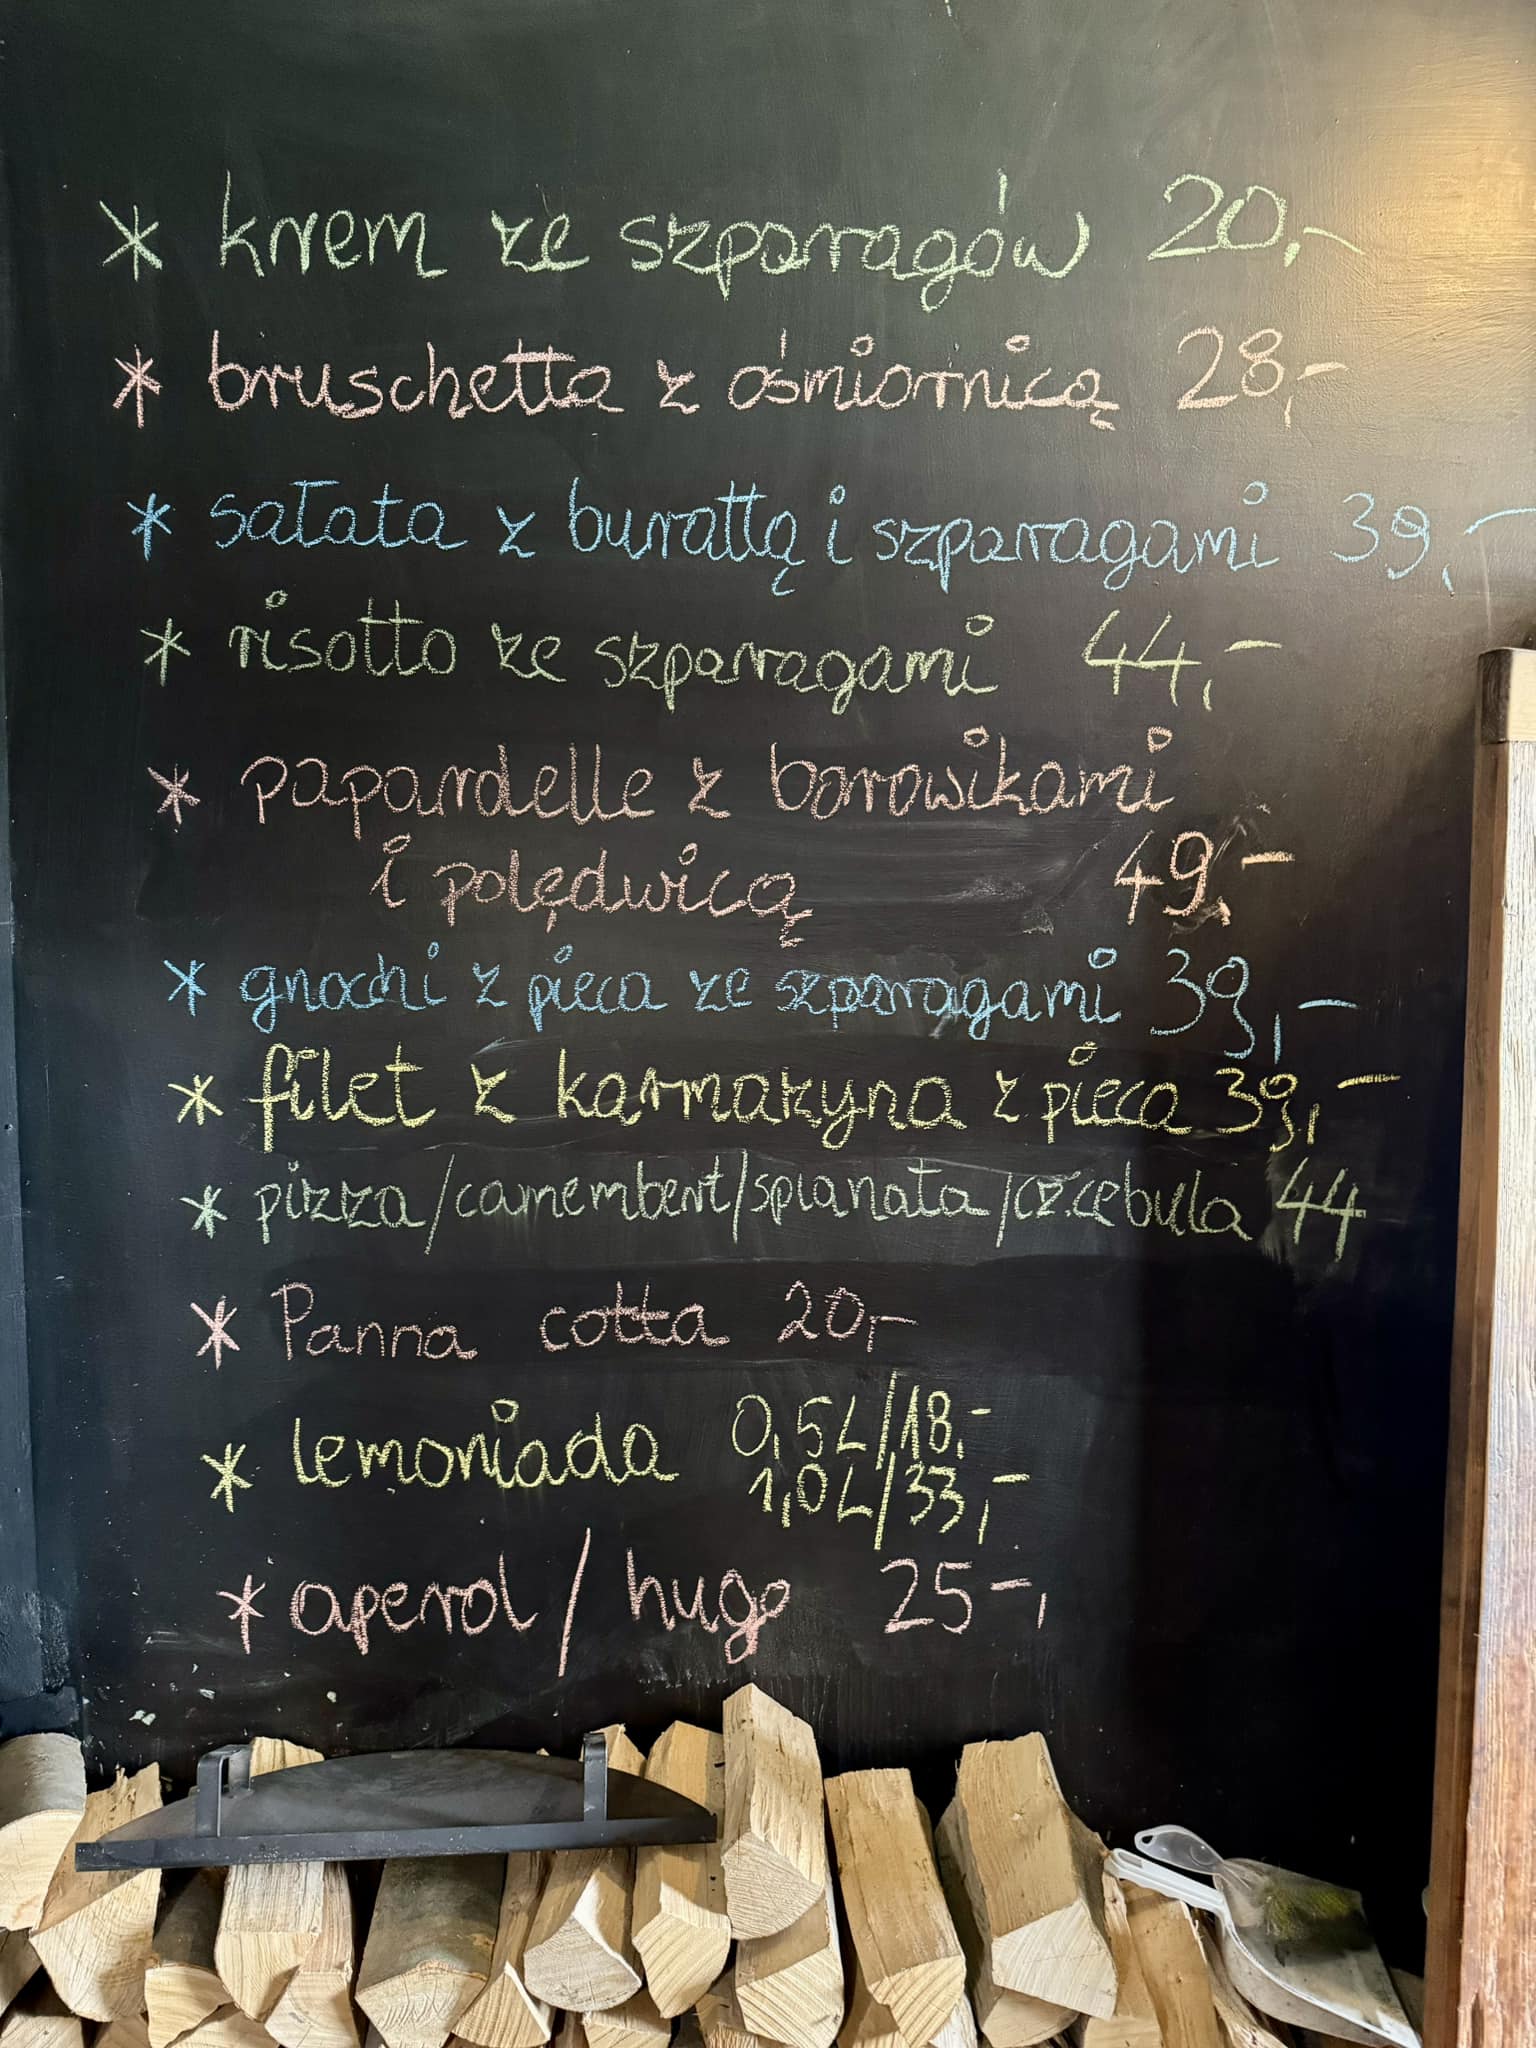 * krem ze szparagów 20,-
* bruschetta z ośmiornicą 28,-
* sałata z burattą i szparagami 39,-
* risotto ze szparagami 44,-
* papardelle z borowikami
i polędwicą 49,-
* gnochi z pieca ze szparagami 39,-
* filet z karmazyna z pieca 39,-
* pizza/camembert/spianata/cz.cebula 44
* Panna cotta 20,-
* lemoniada 0,5L/18,-
1,0L/33,-
* aperol/hugo 25-,